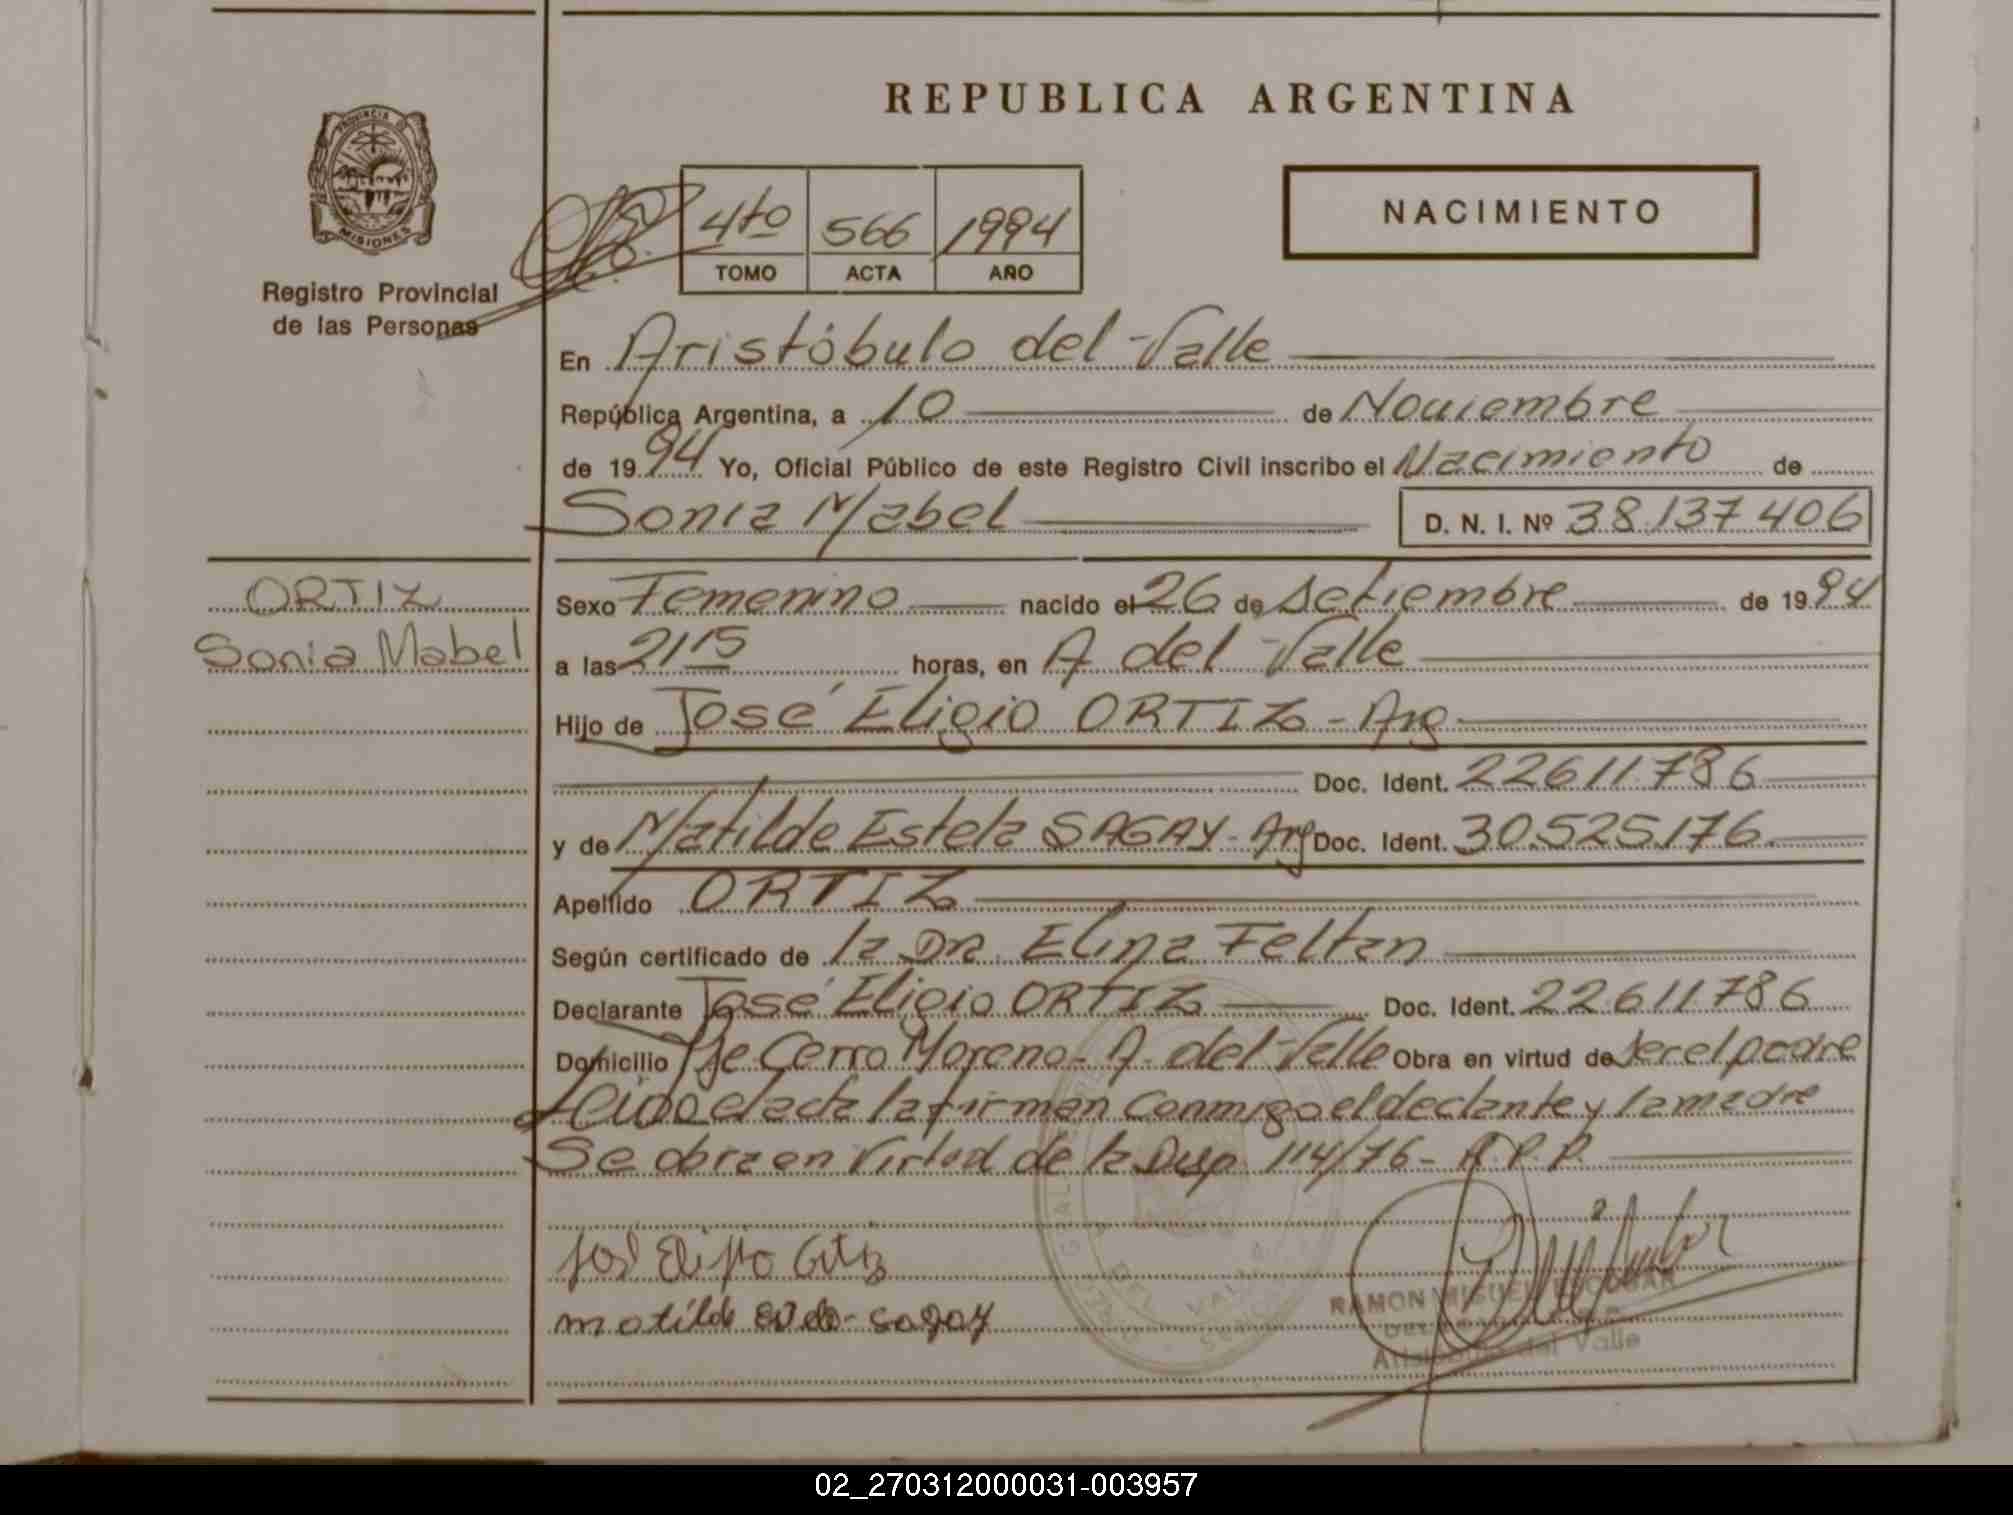 REPUBLICA ARGENTINA
PROVINCIA DE
MISIONES
Registro Provincial
de las Personas
4to 566 1994
TOMO ACTA AÑO
NACIMIENTO
En Aristóbulo del Valle
República Argentina, a 10 de Noviembre
de 1994 Yo, Oficial Público de este Registro Civil inscribo el Nacimiento de
Sonia Mabel D. N. I. Nº 38.137.406
ORTIZ
Sonia Mabel
Sexo Femenino nacido el 26 de Setiembre de 1994
a las 2115 horas, en A. del Valle
Hijo de José Eligio ORTIZ - Arg
Doc. Ident. 22611.786
y de Matilde Estela SAGAY - Arg Doc. Ident. 30.525.176.
Apellido ORTIZ
Según certificado de la DRA. Elina Feltan
Declarante José Eligio ORTIZ Doc. Ident. 22.611.786
Domicilio Pje Cerro Moreno - A. del Valle Obra en virtud de ser el padre
Leida el acta la firman conmigo el declante y la madre
Se obra en virtud de la Disp. 114/76 - R.P.P.
José Eligio Ortiz
matilde sagay
RAMON MIGUEL ESCOBAR
Aristobulo del Valle
DEL VALLE
02_270312000031-003957